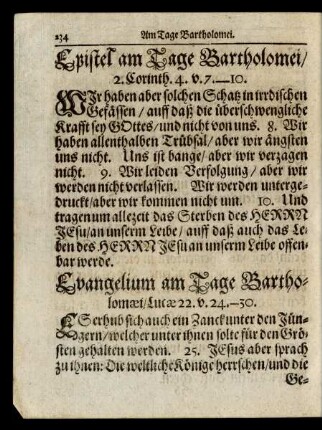 234 Am Tage Bartholomei.
Epistel am Tage Bartholomei/
2. Corinth. 4. v. 7.—10.
WIr haben aber solchen Schatz in irrdischen
Gefässen / auff daß die überschwengliche
Krafft sey GOttes/ und nicht von uns. 8. Wir
haben allenthalben Trübsal/ aber wir ängsten
uns nicht. Uns ist bange/ aber wir verzagen
nicht. 9. Wir leiden Verfolgung / aber wir
werden nicht verlassen. Wir werden unterge-
druckt/ aber wir kommen nicht um. 10. Und
tragen um allezeit das Sterben des HERRN
JEsu/ an unserm Leibe/ auff daß auch das Le-
ben des HERRN JEsu an unserm Leibe offen-
bar werde.
Evangelium am Tage Bartho-
lomæi/ Lucæ 22. v. 24.—30.
ES erhub sich auch ein Zanck unter den Jün-
gern/ welcher unter ihnen solte für den Grö-
sten gehalten werden. 25. JEsus aber sprach
zu ihnen: Die weltliche Könige herrschen/ und die
Ge-